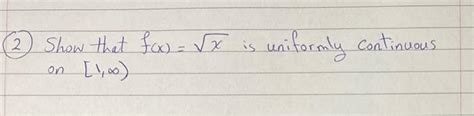 ② Show that f(x) = √x is uniformly continuous
on [1,∞)